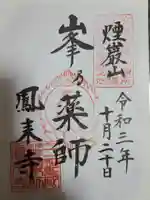 煙巖山
令和二年
十月二十日
峯乃薬師
鳳来寺